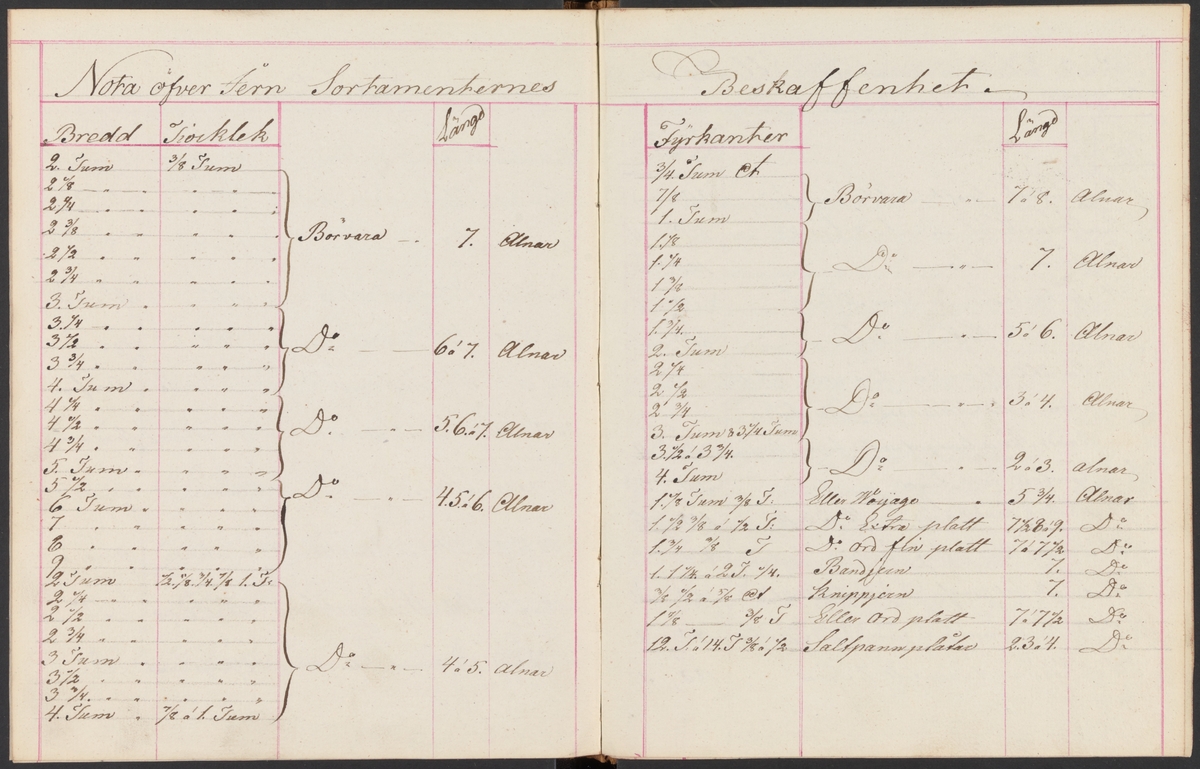 Nota öfver Jern Sortamenternes
Bredd Tjocklek Längd
2. Tum 3/8 Tum
2 1/8 " " " " "
2 1/4 " " " " "
2 3/8 " " " " "
Börvara " 7. Alnar
2 1/2 " " " " "
2 3/4 " " " " "
3. Tum " " " "
3. 1/4 " " " " "
3 1/2 " " " " "
Do " 6 á 7. Alnar
3 3/4 " " " " "
4. Tum " " " "
4 1/4 " " " " "
4 1/2 " " " " "
Do " 5. 6. á 7. Alnar
4 3/4 " " " " "
5. Tum " " " "
5 1/2 " " " " "
Do " 4. 5 á 6. Alnar
6 Tum " " " "
7 " " " " "
8 " " " " "
9 " " " " "
2. Tum 1/2. 5/8. 3/4. 7/8 1. T.
2 1/4 " " " " "
2 1/2 " " " " "
2 3/4 " " " " "
3 Tum " " " "
Do " 4 á 5. Alnar
3 1/2 " " " " "
3 3/4. " " " " "
4. Tum " 7/8 á 1. Tum
Beskaffenhet.
Fyrkanter Längd
3/4. Tum Ct
7/8 Börvara " 7 á 8. Alnar
1. Tum
1. 1/8
1. 1/4 Do " 7. Alnar
1 3/8
1 1/2
1. 3/4. Do " 5 á 6. Alnar
2. Tum
2 1/4
2 1/2 Do " 3 á 4. Alnar
2. 3/4
3. Tum & 3 1/4 Tum
3. 1/2 á 3 3/4. Do " 2 á 3. alnar
4. Tum
1. 1/8 Tum 3/8 T. Eller " 5 3/4. Alnar
1. 1/2 3/8 á 1/2 T. Do Extra platt 7 1/2 8 á 9. Do
1. 3/4 3/8 T Do Ord fin platt 7 á 7 1/2 Do
1. 1 1/4. á 2 T. 1/4. Bandjern 7. Do
Knippjern 7. Do
1 1/8 3/8 T Eller Ord platt 7 á 7 1/2 Do
12. T. á 14. T 3/8 á 1/2 Saltpannplåtar 2. 3 á 4. Do